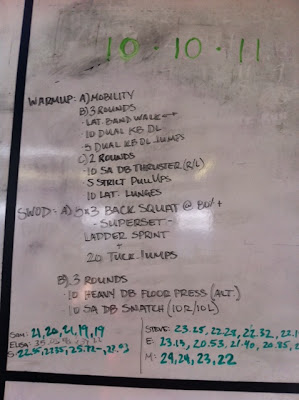 10·10·11
WARMUP: A) MOBILITY
B) 3 ROUNDS
- LAT. BAND WALK
- 10 DUAL KB DL
- 5 DUAL KB DL JUMPS
C) 2 ROUNDS
- 10 SA DB THRUSTER (R/L)
- 5 STRICT PULLUPS
- 10 LAT. LUNGES
SWOD: A) 5x3 BACK SQUAT @ 80%+
- SUPERSET -
LADDER SPRINT
+
20 TUCK JUMPS
B) 3 ROUNDS
- 10 HEAVY DB FLOOR PRESS (ALT.)
- 10 SA DB SNATCH (10R/10L)
21, 20, 21, 19, 19
ELISA:
S: 22.95, 22.35,
STEVE: 23.25, 22.28, 22.32, 22.1
E: 23.15, 20.53, 21.40, 20.85,
M: 24, 24, 23, 22